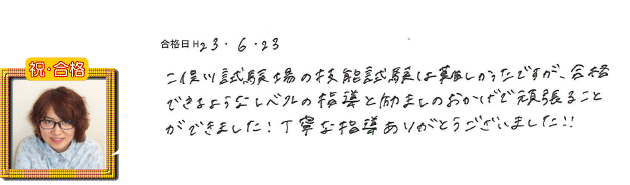 合格日 H23・6・23
祝・合格
二俣川試験場の技能試験は難しかったですが、合格
できるようなレベルの指導と励ましのおかげで頑張ること
ができました！丁寧な指導ありがとうございました!!